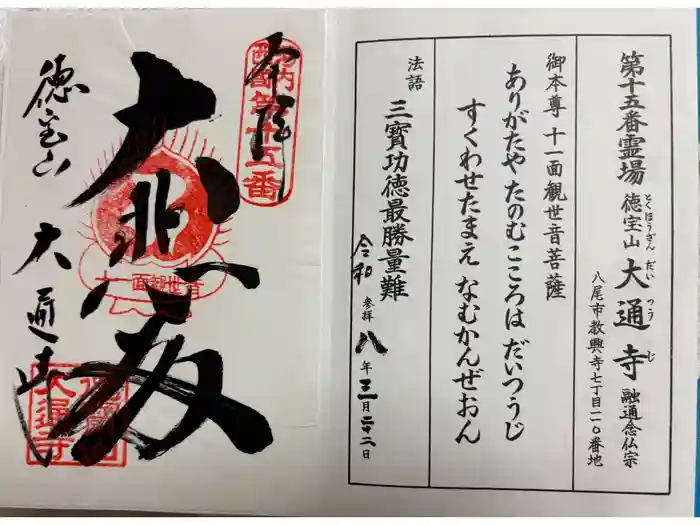 第十五番霊場 徳宝山 大通寺 融通念仏宗
とくほうざん だいつうじ
八尾市教興寺七丁目一一〇番地
御本尊 十一面観世音菩薩
ありがたや たのむこころは だいつうじ
すくわせたまえ なむかんぜおん
法語 三寶功徳最勝量難
令和 参拝 八年三月二十二日
奉拝
第十五番
大悲殿
徳宝山 大通寺
大通寺